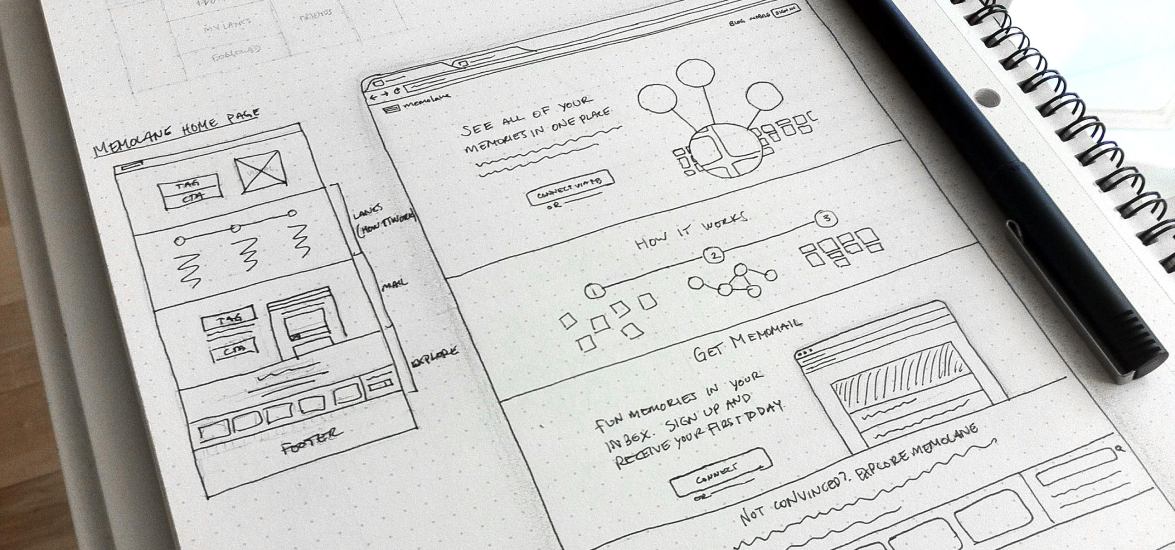 MY LANES
FRIENDS
FOLLOWED
MEMOLANE HOME PAGE
TAG
CTA
LANES
(HOW IT WORKS)
TAG
CTA
MAIL
EXPLORE
FOOTER
BLOG MOBILE SIGN IN
memolane
SEE ALL OF YOUR
MEMORIES IN ONE PLACE
CONNECT VIA FB
OR
HOW IT WORKS
1
2
3
GET MEMOMAIL
FUN MEMORIES IN YOUR
INBOX. SIGN UP AND
RECEIVE YOUR FIRST TODAY.
CONNECT
OR
NOT CONVINCED? EXPLORE MEMOLANE